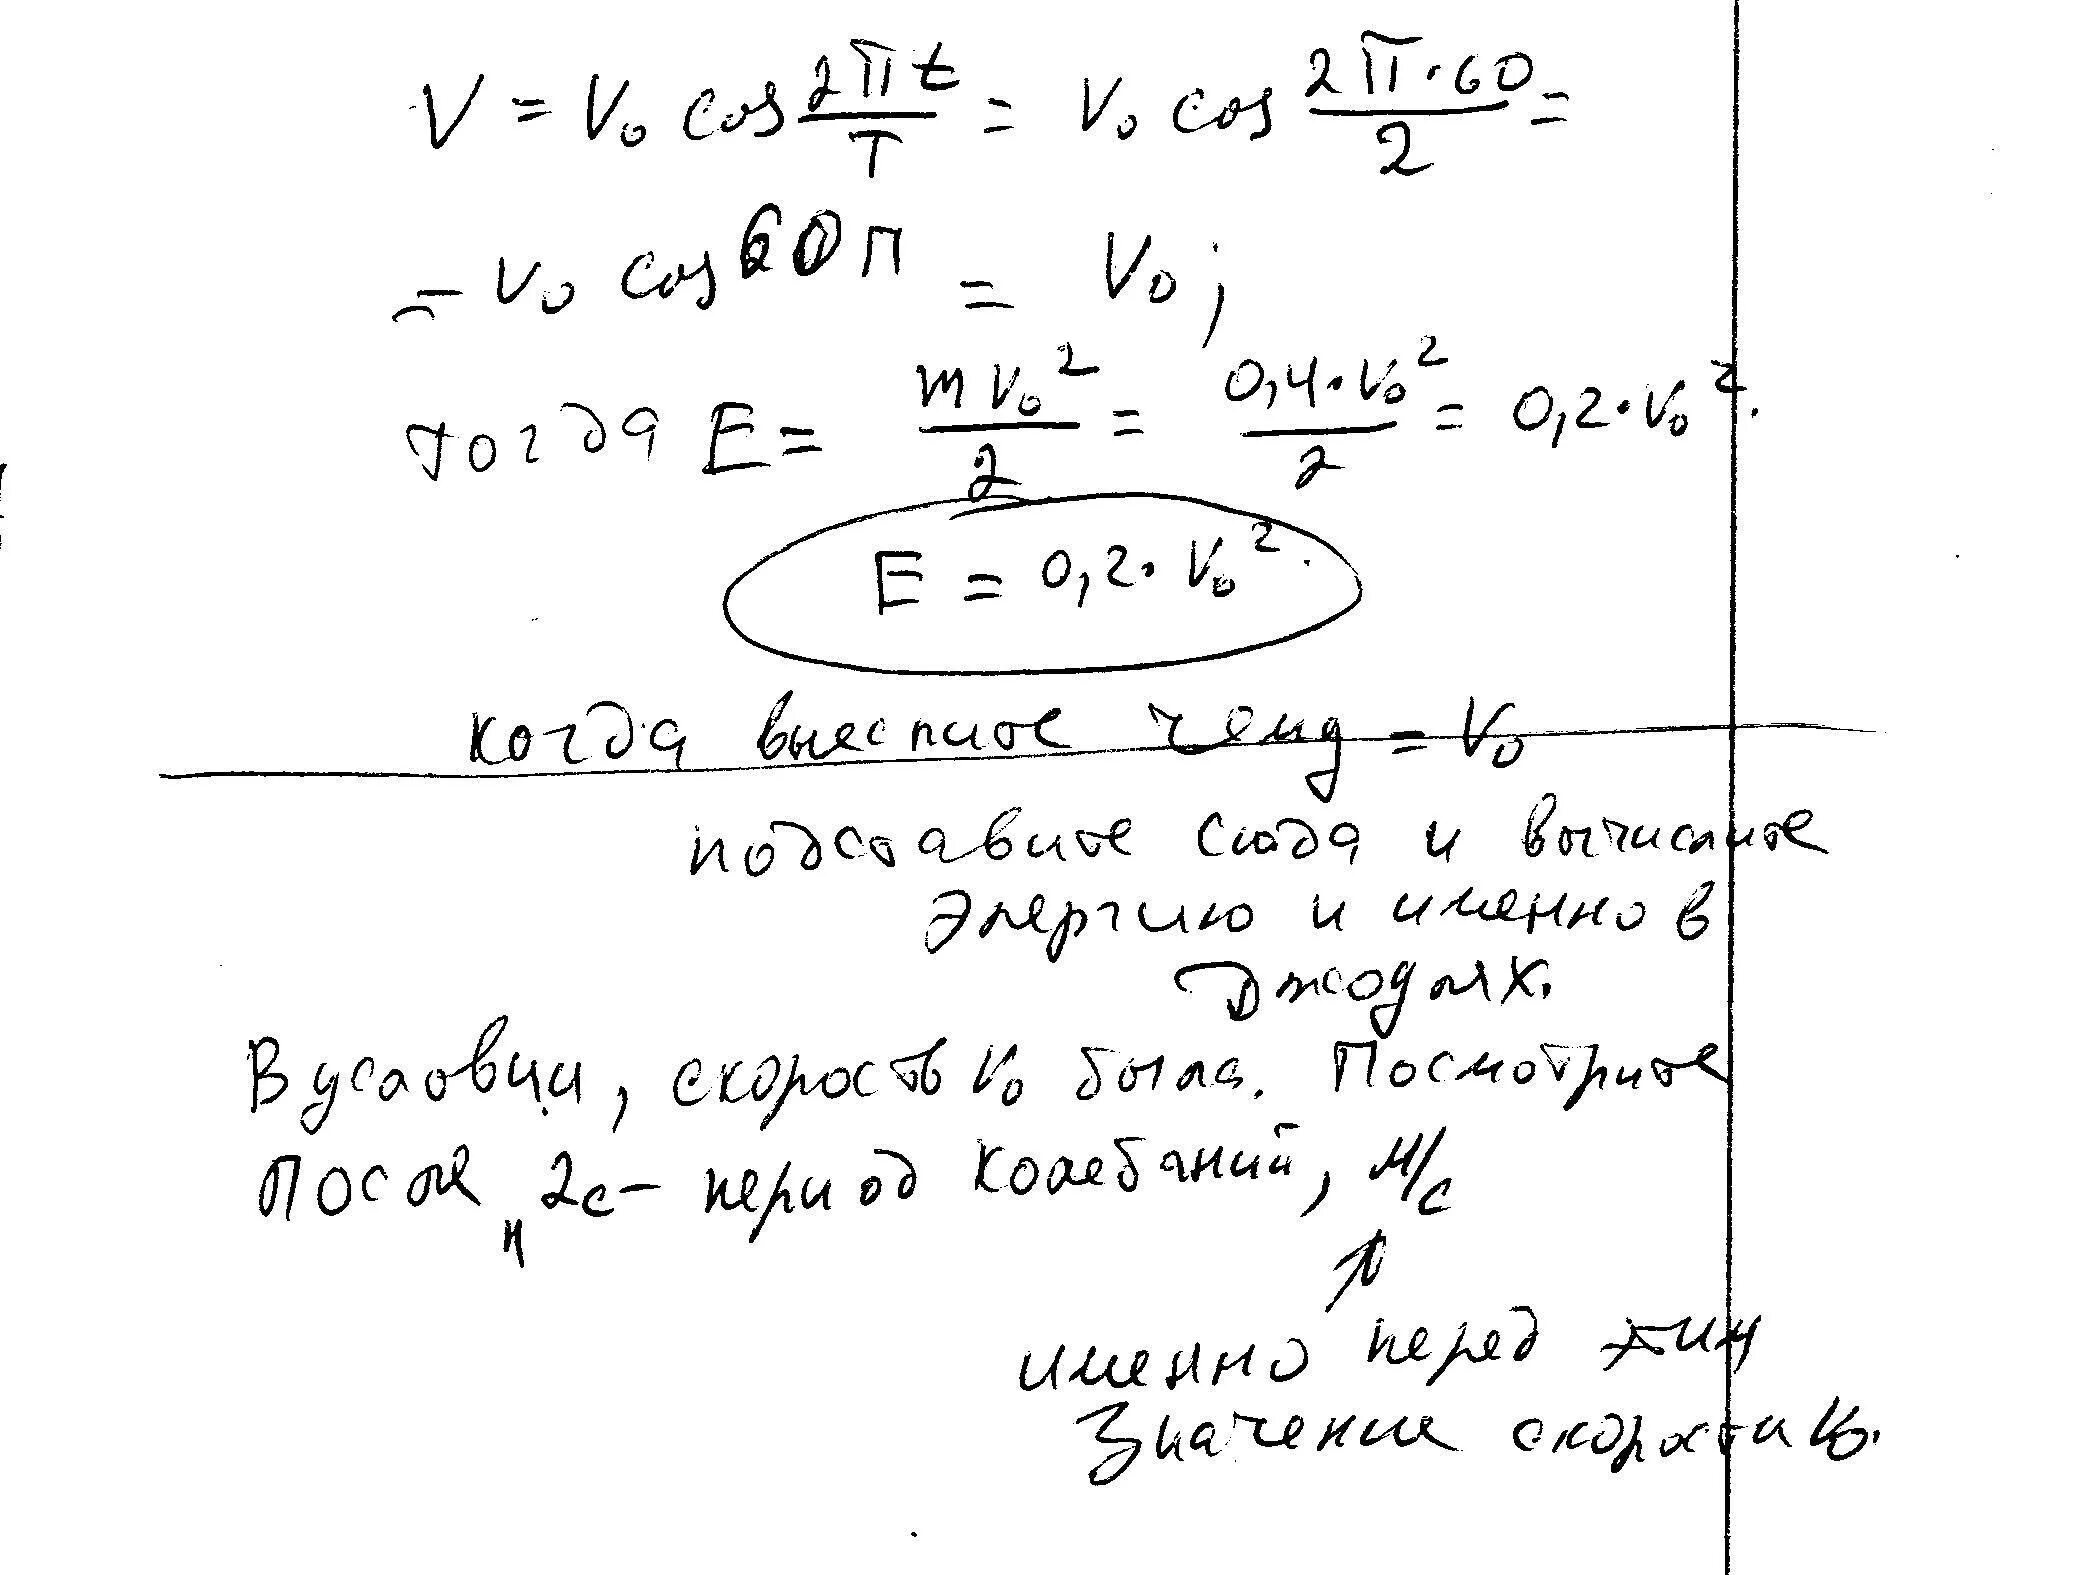 V = V₀ cos 2πt/T = V₀ cos 2π·60/2 =
= V₀ cos 60π = V₀;
тогда E = mV₀²/2 = 0,4·V₀²/2 = 0,2·V₀².
E = 0,2·V₀².
когда чему = V₀
подставите сюда и вычислите
энергию и именно в
Джоулях.
В условии, скорость V₀ была. Посмотрите
После "2с – период колебаний, м/с
именно перед ним
значение скорости V₀.